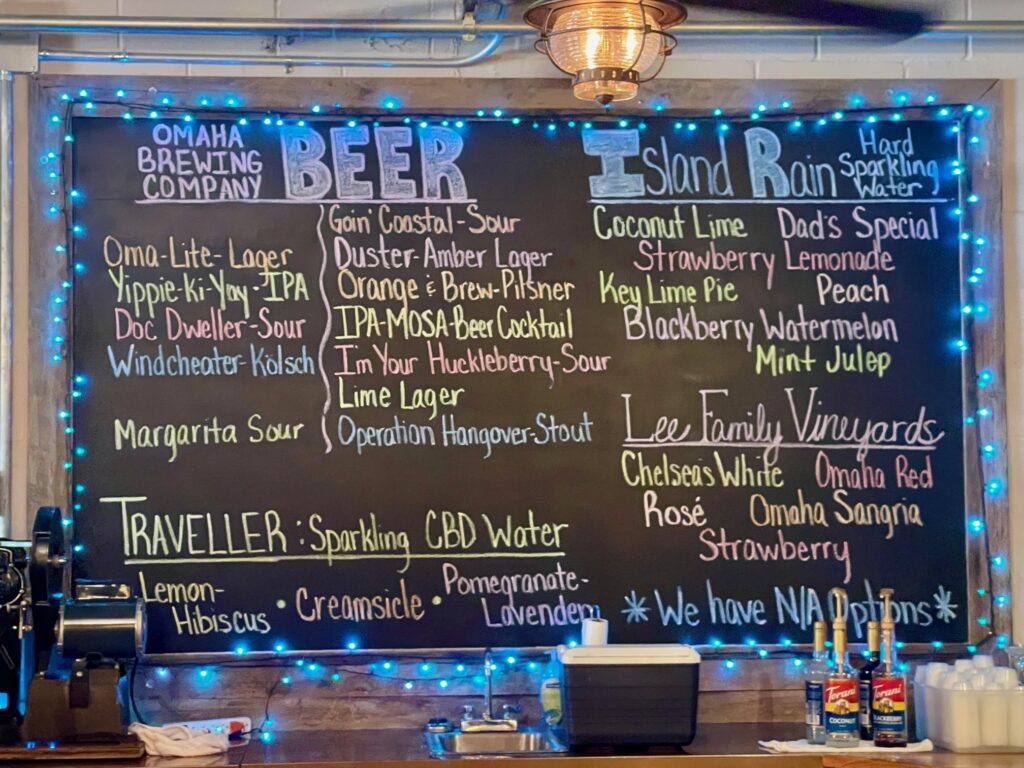 OMAHA
BREWING
COMPANY
BEER
Oma-Lite-Lager
Yippie-Ki-Yay-IPA
Doc Dweller-Sour
Windcheater-Kölsch
Margarita Sour
Goin' Coastal-Sour
Duster-Amber Lager
Orange & Brew-Pilsner
IPA-MOSA-Beer Cocktail
I'm Your Huckleberry-Sour
Lime Lager
Operation Hangover-Stout
TRAVELLER: Sparkling CBD Water
Lemon-
Hibiscus • Creamsicle •
Pomegranate-
Lavender
Island Rain
Hard
Sparkling
Water
Coconut Lime Dad's Special
Strawberry Lemonade
Key Lime Pie Peach
Blackberry Watermelon
Mint Julep
Lee Family Vineyards
Chelsea's White Omaha Red
Rosé Omaha Sangria
Strawberry
*We have N/A Options*
Torani
COCONUT
Torani
BLACKBERRY